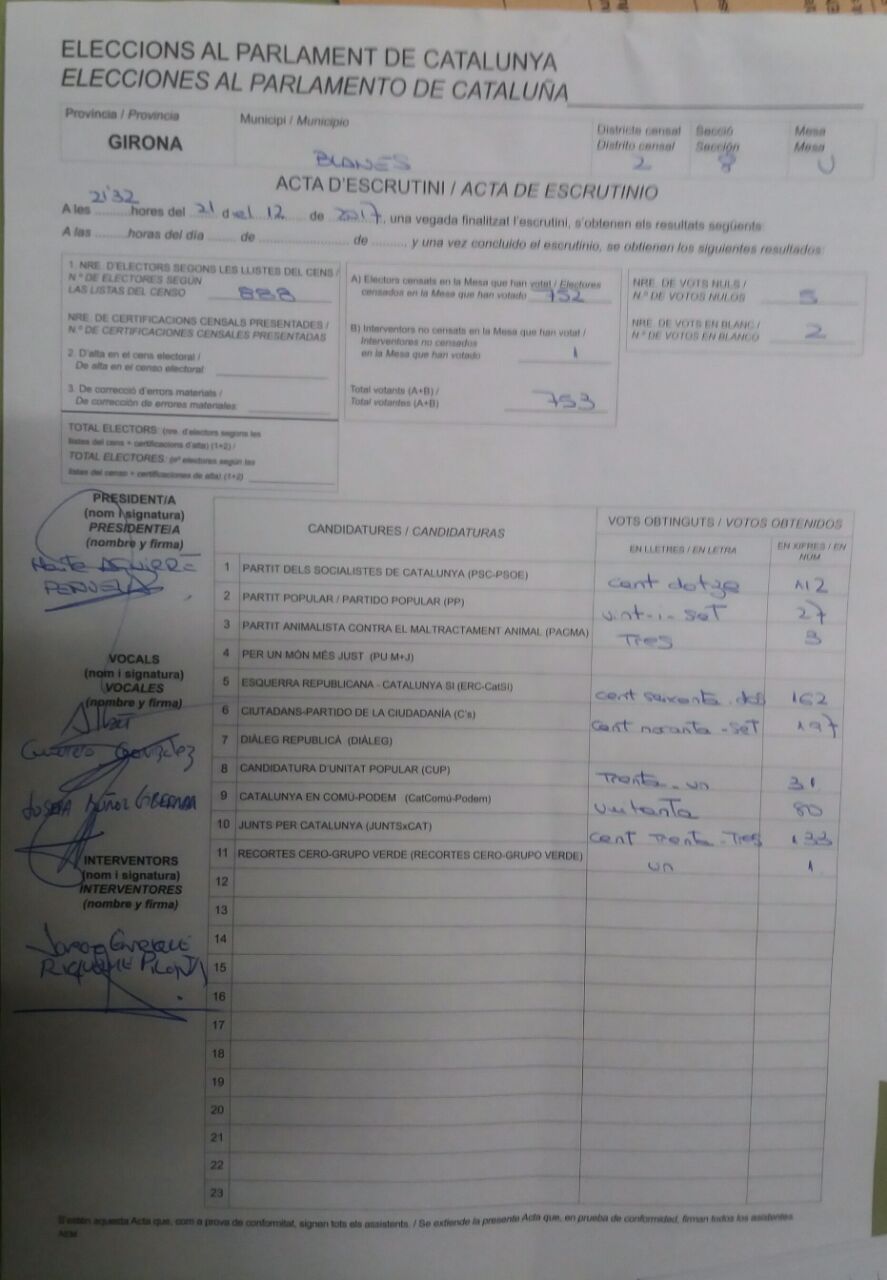 ELECCIONS AL PARLAMENT DE CATALUNYA
ELECCIONES AL PARLAMENTO DE CATALUÑA
Provincia / Provincia
GIRONA
Municipi / Municipio
BLANES
Districte censal
Distrito censal
2
Secció
Sección
8
Mesa
Mesa
U
ACTA D'ESCRUTINI / ACTA DE ESCRUTINIO
A les 21'32 hores del 21 d el 12 de 2017, una vegada finalitzat l'escrutini, s'obtenen els resultats següents:
A las ..........horas del día ...... de ......................... de ........., y una vez concluido el escrutinio, se obtienen los siguientes resultados:
1. NRE. D'ELECTORS SEGONS LES LLISTES DEL CENS /
N.º DE ELECTORES SEGÚN
LAS LISTAS DEL CENSO 888
NRE. DE CERTIFICACIONS CENSALS PRESENTADES /
N.º DE CERTIFICACIONES CENSALES PRESENTADAS
2. D'alta en el cens electoral /
De alta en el censo electoral:
3. De correcció d'errors materials /
De corrección de errores materiales:
TOTAL ELECTORS: (nre. d'electors segons les
llistes del cens + certificacions d'alta) (1+2) /
TOTAL ELECTORES: (nº electores según las
listas del censo + certificaciones de alta) (1+2)
A) Electors censats en la Mesa que han votat / Electores
censados en la Mesa que han votado 752
B) Interventors no censats en la Mesa que han votat /
Interventores no censados
en la Mesa que han votado 1
Total votants (A+B) /
Total votantes (A+B) 753
NRE. DE VOTS NULS /
N.º DE VOTOS NULOS 5
NRE. DE VOTS EN BLANC /
N.º DE VOTOS EN BLANCO 2
PRESIDENT/A
(nom i signatura)
PRESIDENTE/A
(nombre y firma)
VOCALS
(nom i signatura)
VOCALES
(nombre y firma)
Albert
González
JOSEFA MUÑOZ
INTERVENTORS
(nom i signatura)
INTERVENTORES
(nombre y firma)
Enrique
RIQUELME
CANDIDATURES / CANDIDATURAS
VOTS OBTINGUTS / VOTOS OBTENIDOS
EN LLETRES / EN LETRA
EN XIFRES / EN NUM
1 PARTIT DELS SOCIALISTES DE CATALUNYA (PSC-PSOE) cent dotze 112
2 PARTIT POPULAR / PARTIDO POPULAR (PP) vint-i-set 27
3 PARTIT ANIMALISTA CONTRA EL MALTRACTAMENT ANIMAL (PACMA) Tres 3
4 PER UN MÓN MÉS JUST (PU M+J)
5 ESQUERRA REPUBLICANA - CATALUNYA SI (ERC-CatSI) cent seixanta-dos 162
6 CIUTADANS-PARTIDO DE LA CIUDADANÍA (C's) cent noranta-set 197
7 DIÀLEG REPUBLICÀ (DIÀLEG)
8 CANDIDATURA D'UNITAT POPULAR (CUP) Trenta-un 31
9 CATALUNYA EN COMÚ-PODEM (CatComú-Podem) vuitanta 80
10 JUNTS PER CATALUNYA (JUNTSxCAT) cent Trenta-Tres 133
11 RECORTES CERO-GRUPO VERDE (RECORTES CERO-GRUPO VERDE) un 1
12
13
14
15
16
17
18
19
20
21
22
23
S'estén aquesta Acta que, com a prova de conformitat, signen tots els assistents. / Se extiende la presente Acta que, en prueba de conformidad, firman todos los asistentes.